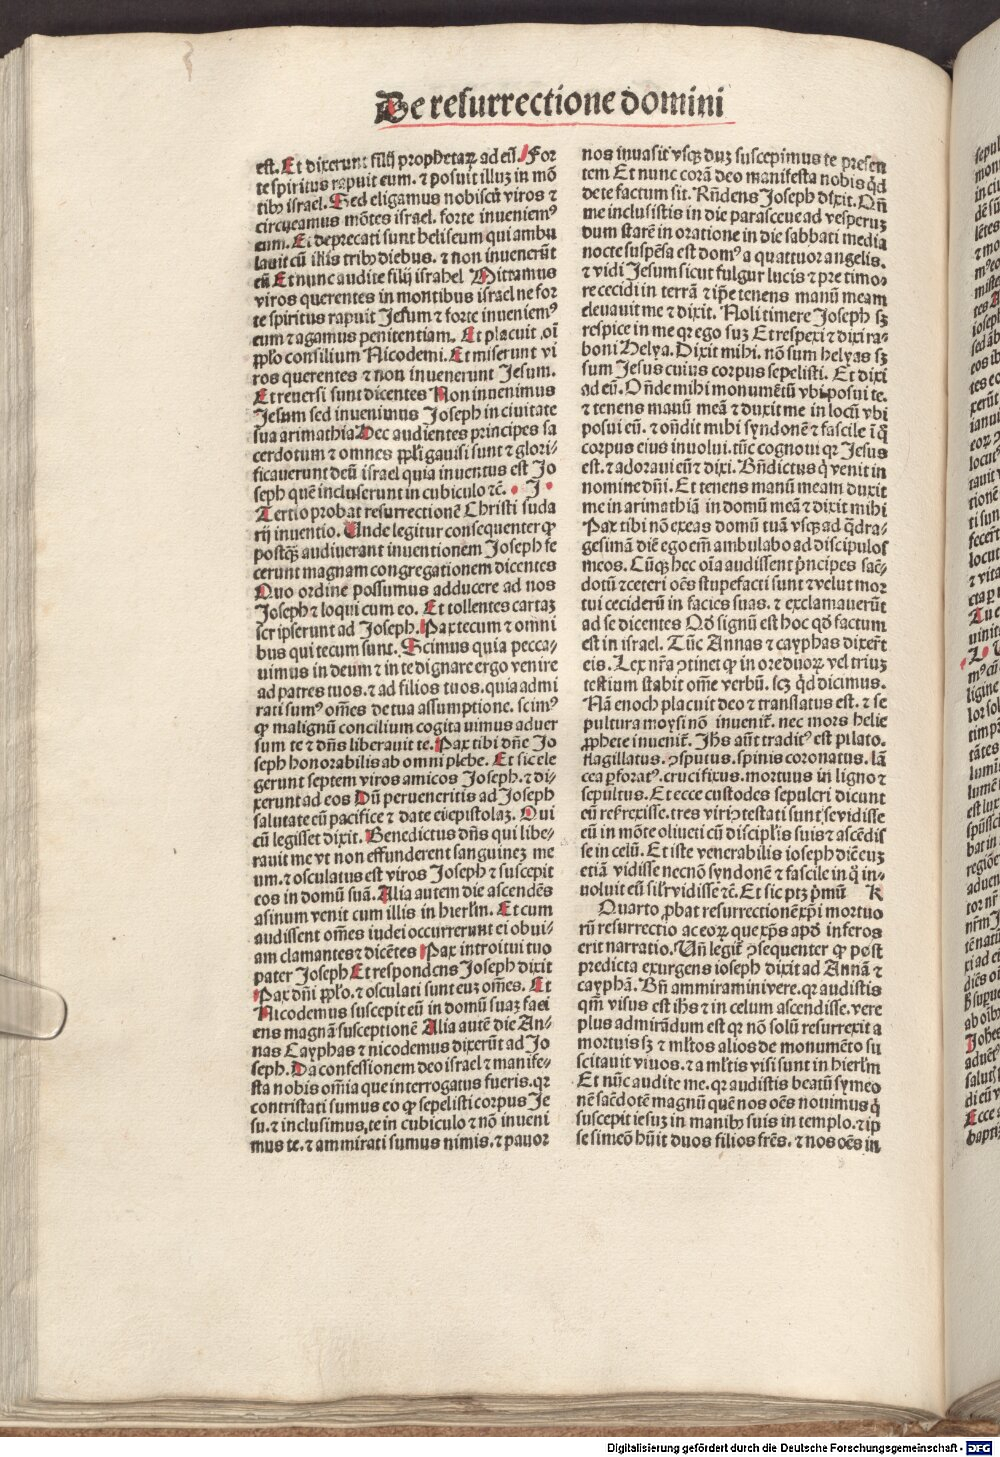 De resurrectione domini
est. Et dixerunt filij prophetaꝝ ad eū. For
te spiritus rapuit eum. ⁊ posuit illuꝫ in mō
tibꝰ israel. Sed eligamus nobiscū viros ⁊
circueamus mōtes israel. forte inueniemꝰ
eum. Et deprecati sunt heliseum qui ambu
lauit cū illis tribꝰ diebus. ⁊ non inuenerūt
eū Et nunc audite filij israhel Mittamus
viros querentes in montibus israel ne for
te spiritus rapuit Jesum ⁊ forte inueniemꝰ
eum ⁊ agamus penitentiam. Et placuit oī
pp̄lo consilium Nicodemi. Et miserunt vi
ros querentes ⁊ non inuenerunt Jesum.
Et reuersi sunt dicentes Non inuenimus
Jesum sed inuenimus Joseph in ciuitate
sua arimathia Hec audientes principes sa
cerdotum ⁊ omnes pp̄li gauisi sunt ⁊ glori-
ficauerunt deū israel quia inuentus est Jo
seph quē incluserunt in cubiculo ⁊c. J
Tertio probat resurrectionē Christi suda
rij inuentio. Unde legitur consequenter ꝙ
postqꝫ audiuerant inuentionem Joseph fe
cerunt magnam congregationem dicentes
Quo ordine possumus adducere ad nos
Joseph ⁊ loqui cum eo. Et tollentes cartaꝫ
scripserunt ad Joseph. Pax tecum ⁊ omni
bus qui tecum sunt. Scimus quia pecca-
uimus in deum ⁊ in te dignare ergo venire
ad patres tuos. ⁊ ad filios tuos. quia admi
rati sumꝰ om̄es de tua assumptione. scimꝰ
ꝙ malignū concilium cogitauimus aduer
sum te ⁊ dn̄s liberauit te. Pax tibi dn̄e Jo
seph honorabilis ab omni plebe. Et sic ele
gerunt septem viros amicos Joseph. ⁊ di-
xerunt ad eos Dū perueneritis ad Joseph
salutate eū pacifice ⁊ date ei epistolaꝫ. Qui
cū legisset dixit. Benedictus dn̄s qui libe-
rauit me vt non effunderent sanguineꝫ me
um. ⁊ osculatus est viros Joseph ⁊ suscepit
eos in domū suā. Alia autem die ascendēs
asinum venit cum illis in hierlm̄. Et cum
audissent om̄es iudei occurrerunt ei obui-
am clamantes ⁊ dicētes Pax introitui tuo
pater Joseph Et respondens Joseph dixit
Pax dn̄i pp̄lo. ⁊ osculati sunt euꝫ om̄es. Et
Nicodemus suscepit eū in domū suaꝫ faci
ens magnā susceptionē Alia autē die An-
nas Cayphas ⁊ nicodemus dixerūt ad Jo
seph. Da confessionem deo israel ⁊ manife-
sta nobis om̄ia que interrogatus fueris. qꝛ
contristati sumus eo ꝙ sepelisti corpus Je
su. ⁊ inclusimus te in cubiculo ⁊ nō inueni
mus te. ⁊ ammirati sumus nimis. ⁊ pauor
nos inuasit vsqꝫ duꝫ suscepimus te presen
tem Et nunc corā deo manifesta nobis qd̄
de te factum sit. Rn̄dens Joseph dixit. Qn̄
me inclusistis in die parasceue ad vesperuꝫ
dum starē in oratione in die sabbati media
nocte suspēsa est domꝰ a quattuor angelis.
⁊ vidi Jesum sicut fulgur lucis ⁊ pre timo-
re cecidi in terrā ⁊ ip̄e tenens manū meam
eleuauit me ⁊ dixit. Noli timere Joseph sꝫ
respice in me qꝛ ego suꝫ Et respexi ⁊ dixi ra-
boni Helya. Dixit mihi. nō sum helyas sꝫ
sum Jesus cuius corpus sepelisti. Et dixi
ad eū. On̄de mihi monumētū vbi posui te.
⁊ tenens manū meā ⁊ duxit me in locū vbi
posui eū. ⁊ on̄dit mihi syndonē ⁊ fascile ī q̄
corpus eius inuolui. tūc cognoui qꝛ Jesus
est. ⁊ adoraui eū ⁊ dixi. Bn̄dictus q̇ venit in
nomine dn̄i. Et tenens manū meam duxit
me in arimathiā in domū meā ⁊ dixit mihi
Pax tibi nō exeas domū tuā vsqꝫ ad qd̄ra-
gesimā diē ego em̄ ambulabo ad discipulos
meos. Cūqꝫ hec oīa audissent p̄ncipes sac̄-
dotū ⁊ ceteri oēs stupefacti sunt ⁊ velut mor
tui ceciderū in facies suas. ⁊ exclamauerūt
ad se dicentes Qd̄ signū est hoc qd̄ factum
est in israel. Tūc Annas ⁊ cayphas dixer̄t
eis. Lex nr̄a ꝯtinet ꝙ in ore duoꝝ vel triuꝫ
testium stabit om̄e verbū. scꝫ qd̄ dicimus.
Nā enoch placuit deo ⁊ translatus est. ⁊ se
pultura moysi nō inuenit̄. nec mors helie
ꝓphete inuenit̄. Jhs aūt traditꝰ est pilato.
flagillatus. ꝯsputus. spinis coronatus. lā
cea ꝑforatꝰ. crucifixus. mortuus in ligno ⁊
sepultus. Et ecce custodes sepulcri dicunt
eū resurrexisse. tres viri ꝯtestati sunt se vidisse
eū in mōte oliueti cū discipl̄is suis ⁊ ascēdis
se in celū. Et iste venerabilis ioseph dic̄ euꝫ
etiā vidisse necnō syndonē ⁊ fascile in q̄ in-
uoluit eū sil̄r vidisse ⁊c. Et sic ptꝫ p̄mū K
Quarto ꝓbat resurrectionē xp̄i mortuo
rū resurrectio ac eoꝝ que xp̄s apd̄ inferos
erit narratio. Un̄ legit̄ ꝯsequenter ꝙ post
predicta exurgens ioseph dixit ad Annā ⁊
cayphā. Bn̄ ammiramini vere. qꝛ audistis
qm̄ visus est ihs ⁊ in celum ascendisse. vere
plus admirādum est qꝛ nō solū resurrexit a
mortuis sꝫ ⁊ ml̄tos alios de monumēto su
scitauit viuos. ⁊ a ml̄tis visi sunt in hierlm̄
Et nūc audite me. qꝛ audistis beatū symeo
nē sacdotē magnū quē nos oēs nouimus q̇
suscepit iesuꝫ in manibꝰ suis in templo. ⁊ ip
se simeō hūit duos filios frēs. ⁊ nos oēs in
Digitalisierung gefördert durch die Deutsche Forschungsgemeinschaft - DFG